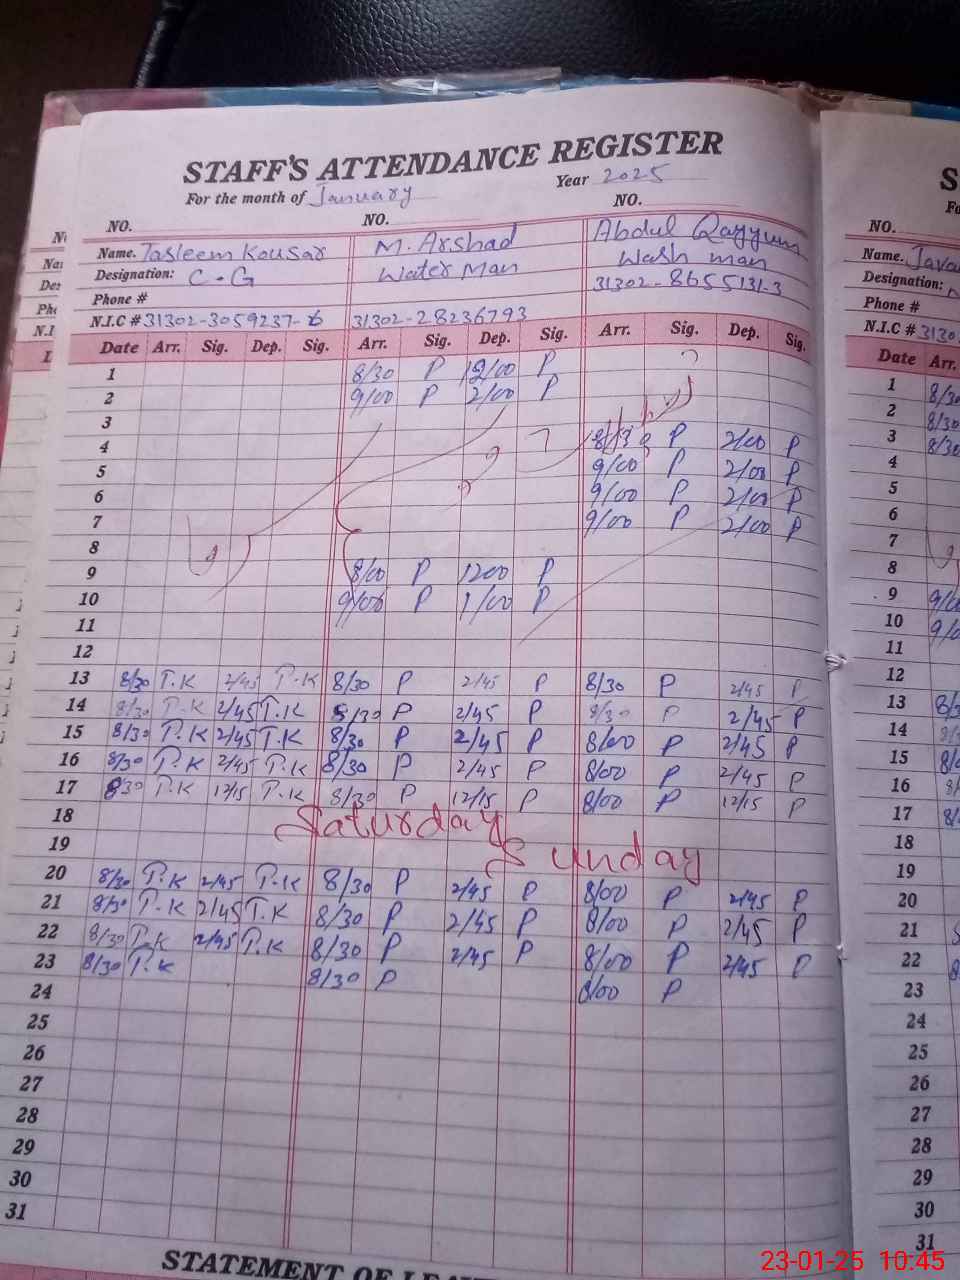 STAFF'S ATTENDANCE REGISTER
For the month of January Year 2025
NO. NO. NO.
Name. Tasleem Kousar M. Arshad Abdul Qayyum
Designation: C.G Water Man Wash man
Phone # 31302-8655131-3
N.I.C # 31302-3059237-6 31302-28236793
Date Arr. Sig. Dep. Sig. Arr. Sig. Dep. Sig. Arr. Sig. Dep. Sig.
1 8/30 P 12/00 P
2 9/00 P 2/00 P
3
4 P 2/00 P
5 9/00 P 2/00 P
6 9/00 P 2/00 P
7 9/00 P 2/00 P
8
9 8/00 P 1200 P
10 9/00 P 1/00 P
11
12
13 8/30 T.K 2/45 T.K 8/30 P 2/45 P 8/30 P 2/45 P
14 8/30 T.K 2/45 T.K 8/30 P 2/45 P 8/30 P 2/45 P
15 8/30 T.K 2/45 T.K 8/30 P 2/45 P 8/00 P 2/45 P
16 8/30 T.K 2/45 T.K 8/30 P 2/45 P 8/00 P 2/45 P
17 830 T.K 12/15 T.K 8/30 P 12/15 P 8/00 P 12/15 P
18 Saturday
19 Sunday
20 8/30 T.K 2/45 T.K 8/30 P 2/45 P 8/00 P 2/45 P
21 8/30 T.K 2/45 T.K 8/30 P 2/45 P 8/00 P 2/45 P
22 8/30 T.K 2/45 T.K 8/30 P 2/45 P 8/00 P 2/45 P
23 8/30 T.K 8/30 P 8/00 P
24
25
26
27
28
29
30
31
STATEMENT OF
NO.
Name.
Designation:
Phone #
N.I.C # 3130
Date Arr.
1 8/30
2 8/30
3 8/30
4
5
6
7
8
9
10
11
12
13
14
15
16
17
18
19
20
21
22
23
24
25
26
27
28
29
30
31
23-01-25 10:45